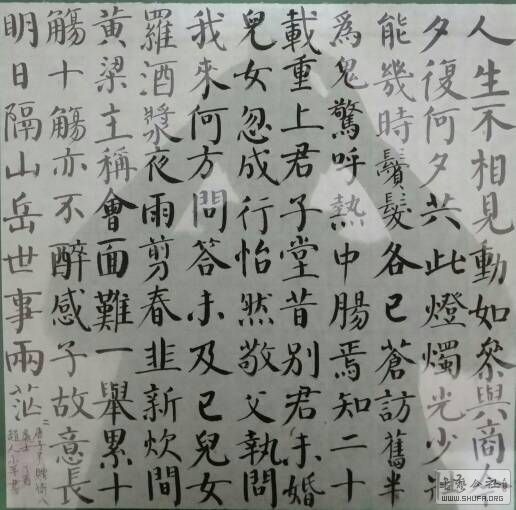 人生不相見動如參與商今
夕復何夕共此燈燭光少壯
能幾時鬢髮各已蒼訪舊半
爲鬼驚呼熱中腸焉知二十
載重上君子堂昔別君未婚
兒女忽成行怡然敬父執問
我來何方問答未及已兒女
羅酒漿夜雨剪春韭新炊間
黃粱主稱會面難一舉累十
觴十觴亦不醉感子故意長
明日隔山岳世事兩茫
WWW.SHUFA.ORG